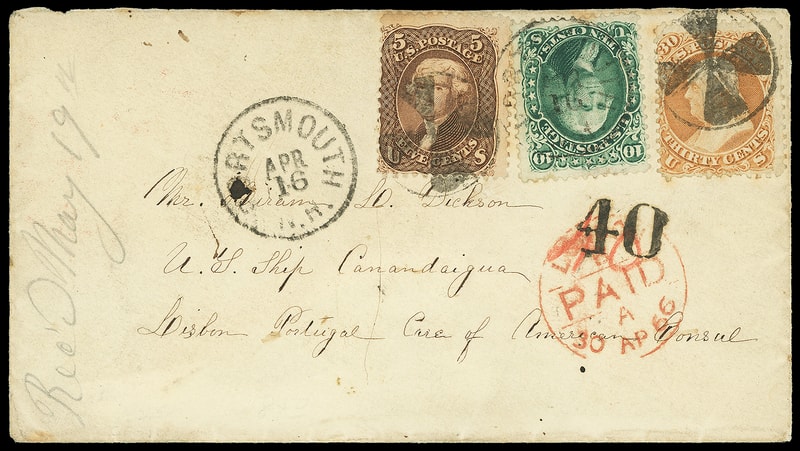 5 5
U.S. POSTAGE
FIVE CENTS
U S
TEN CENTS
U.S. POSTAGE
10 10
30
THIRTY CENTS
U S
PORTSMOUTH
APR
16
N.H.
Mr. Hiram D. Dickson
U. S. Ship Canandaigua
Lisbon Portugal Care of American Consul
40
PAID
A
30 AP 66
Rec'd May 19th